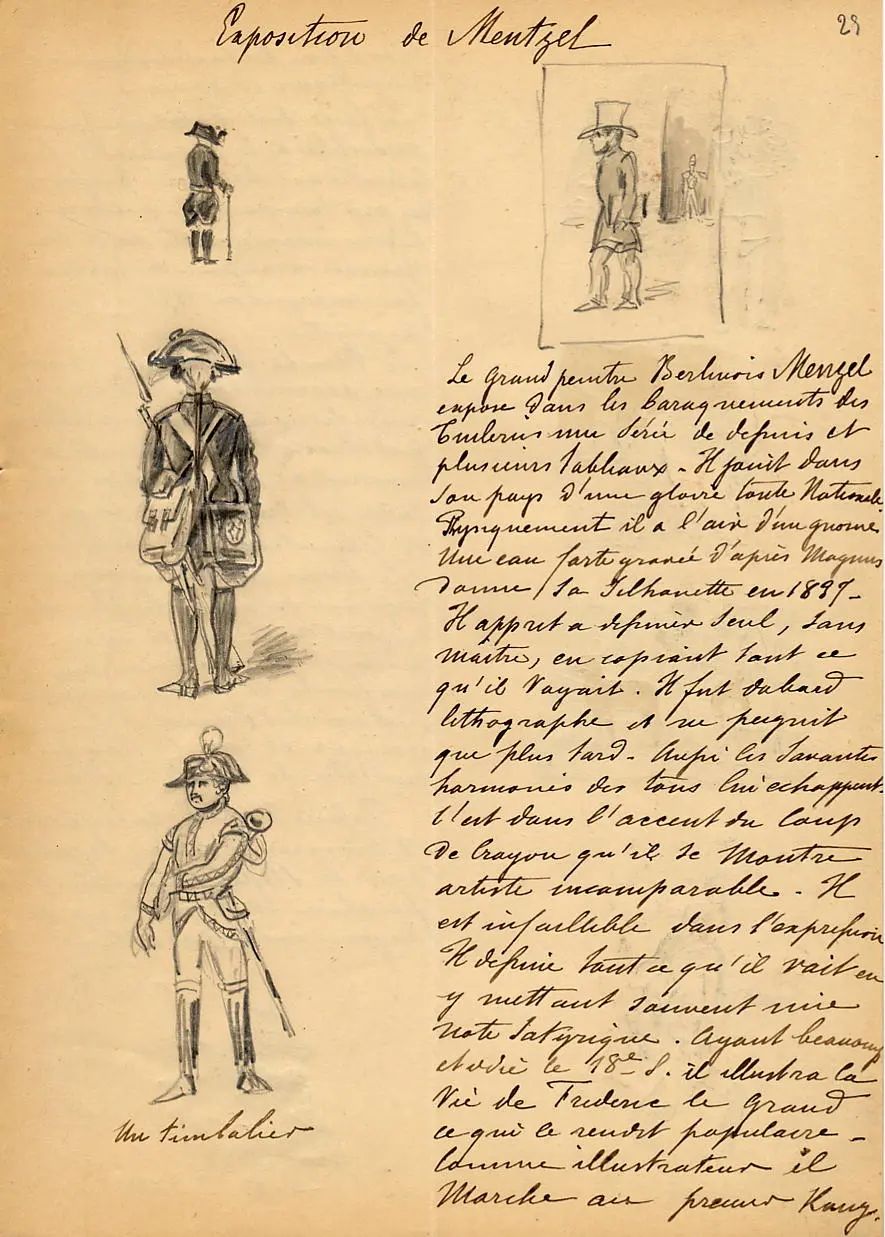 Exposition de Mentzel
29
Le grand peintre Berlinois Menzel
expose dans les baraquements des
Tuileries une série de dessins et
plusieurs tableaux - Il jouit dans
son pays d'une gloire toute Nationale.
Physiquement il a l'air d'un gnome
Une eau forte gravée d'après Magnus
donne sa Silhouette en 1837 -
Il apprit a dessiner Seul, Sans
maître, en copiant tout ce
qu'il Voyait. Il fut dabord
lithographe et ne peignit
que plus tard - Aussi les Savantes
harmonies des tons lui echappent.
C'est dans l'accent du Coup
De Crayon qu'il se Montre
artiste incomparable - Il
est infaillible dans l'expression
Il dessine tout ce qu'il voit en
y mettant souvent une
note Satyrique. Ayant beaucoup
etudié le 18e S. il illustra la
Vie de Frederic le Grand
ce qui le rendit populaire -
Comme illustrateur il
Marche au premier Rang.
Un timbalier